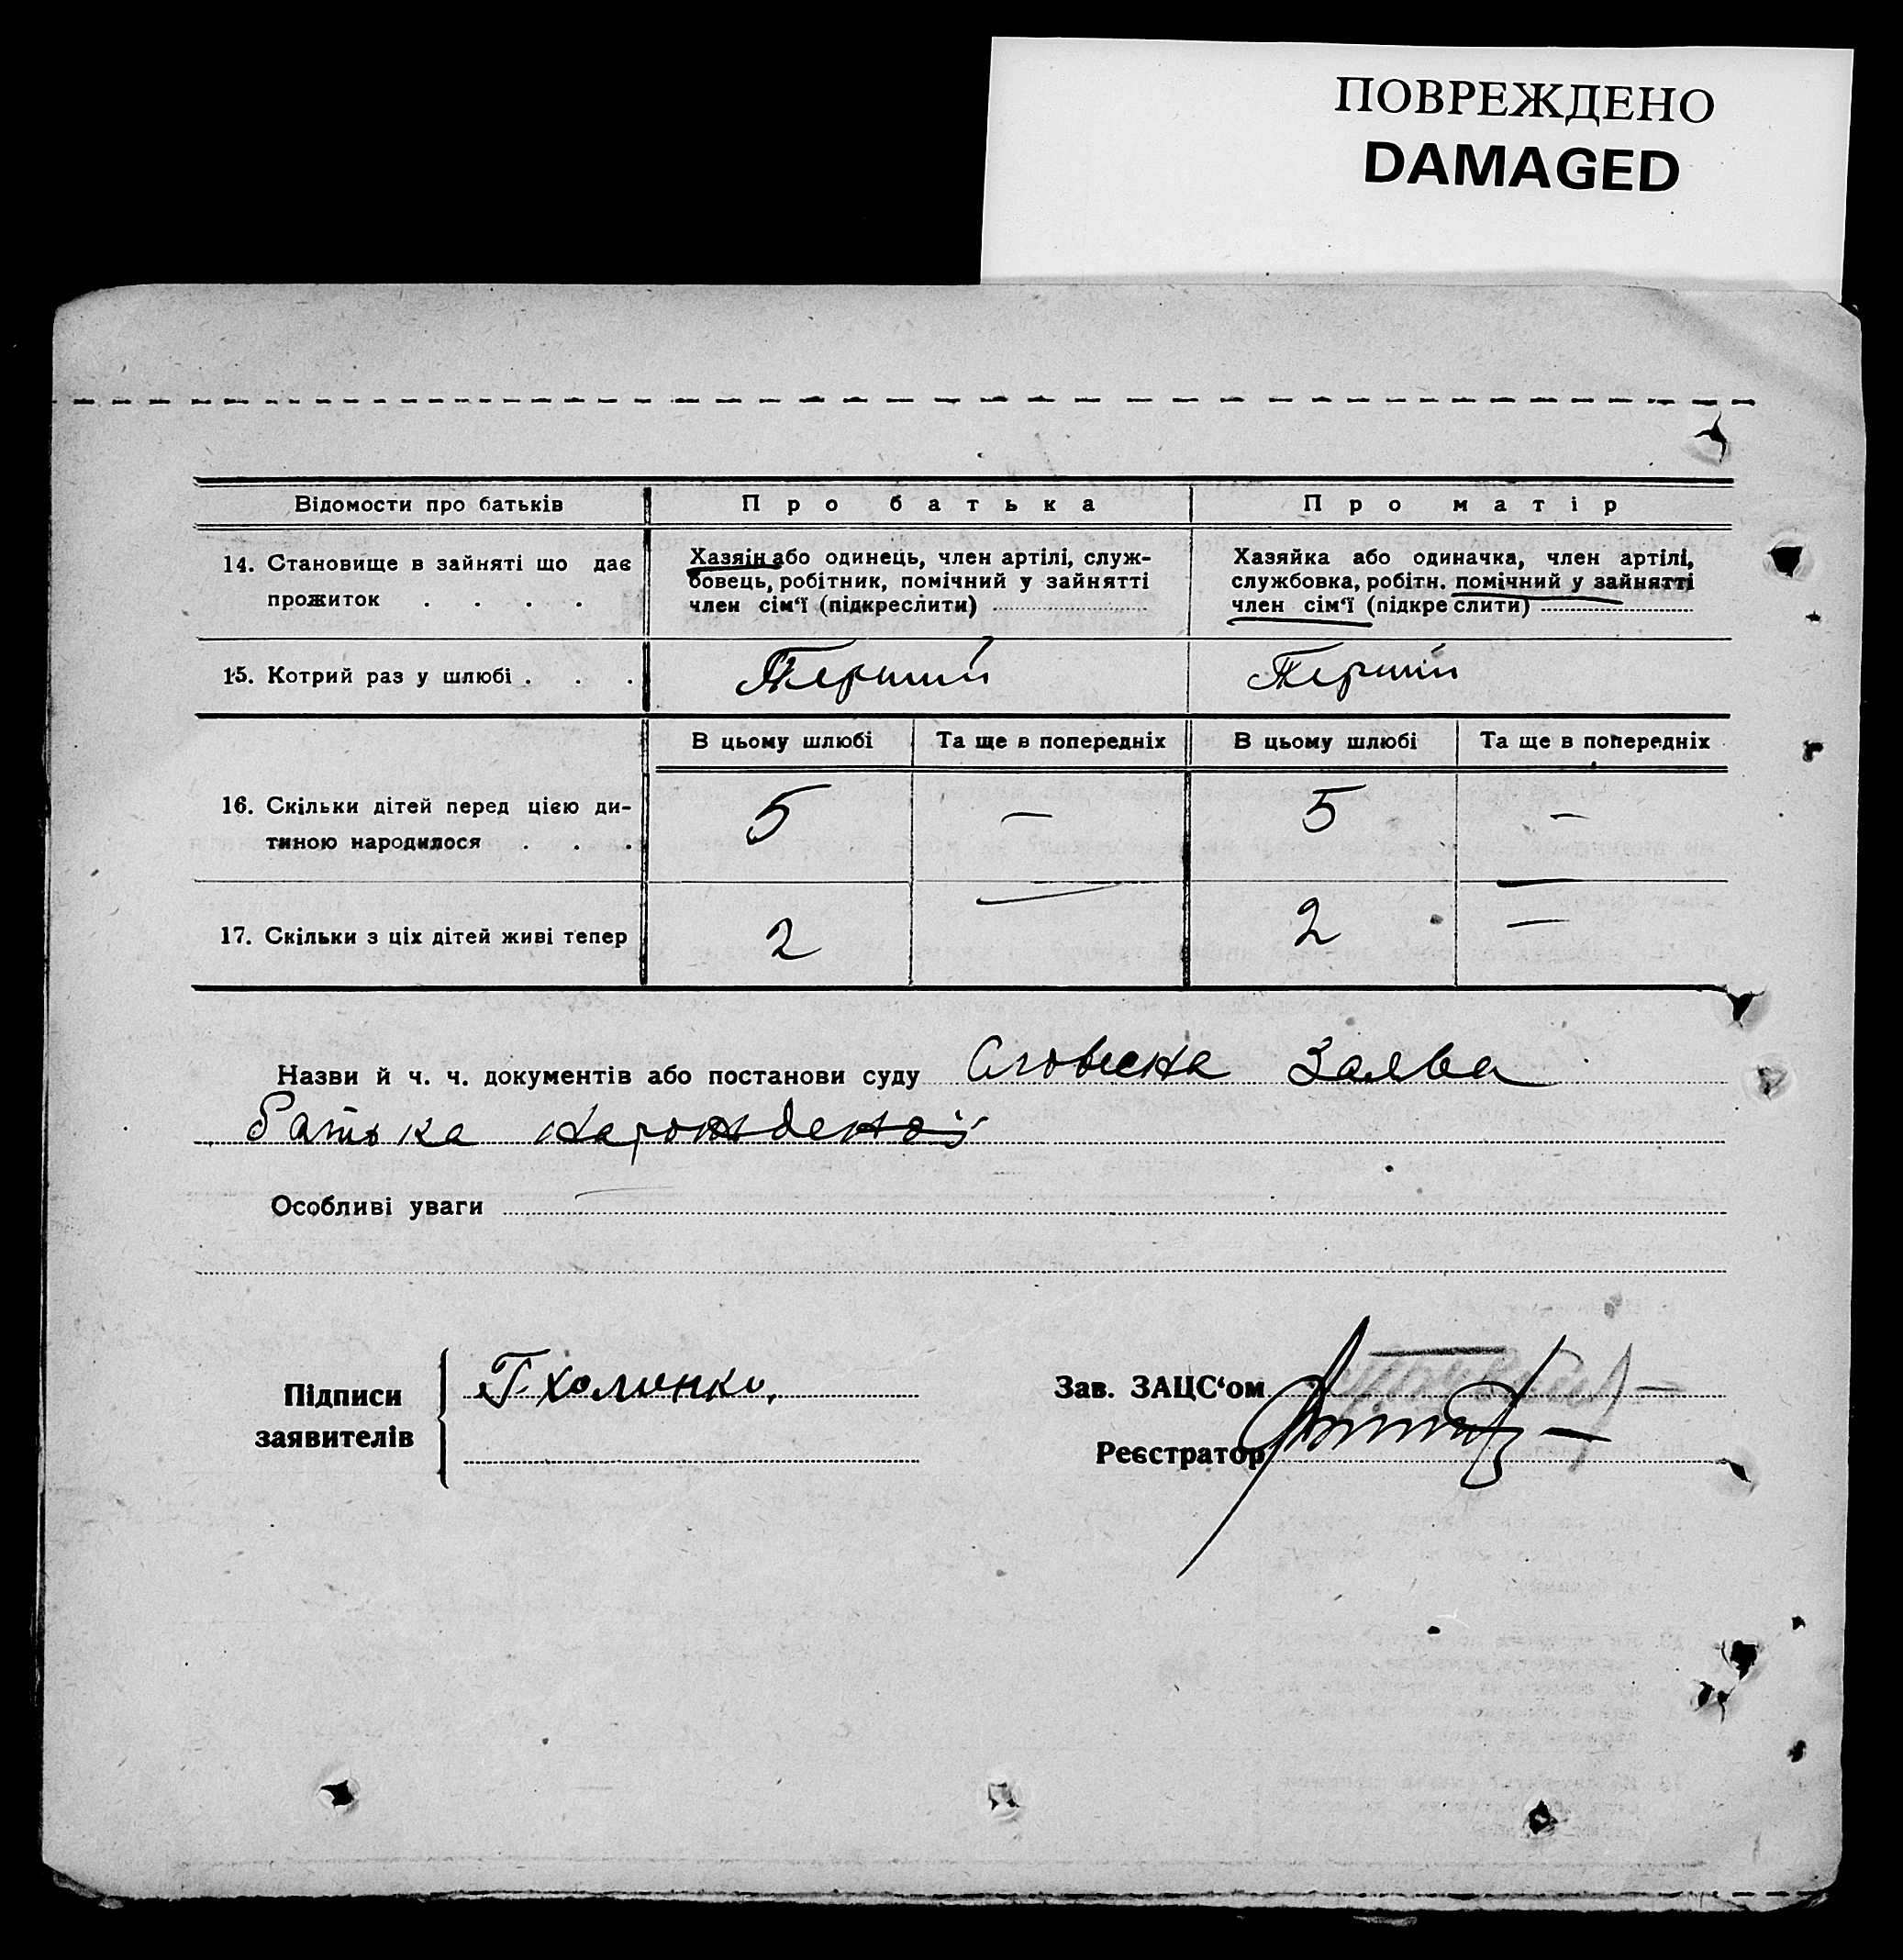 ПОВРЕЖДЕНО
DAMAGED
Відомости про батьків
Про батька
Про матір
14. Становище в зайняті що дає
прожиток . . . .
Хазяін або одинець, член артілі, служ-
бовець, робітник, помічний у зайнятті
член сім‘ї (підкреслити)
Хазяйка або одиначка, член артілі,
службовка, робітн. помічний у зайнятті
член сім‘ї (підкреслити)
15. Котрий раз у шлюбі . . .
Перший
Перший
В цьому шлюбі
Та ще в попередніх
В цьому шлюбі
Та ще в попередніх
16. Скільки дітей перед цією ди-
тиною народилося . . .
5
—
5
—
17. Скільки з ціх дітей живі тепер
2
—
2
—
Назви й ч. ч. документів або постанови суду Словесна Заява
батька нарожденой
Особливі уваги
Підписи
заявителів
Г. Холинко,
Зав. ЗАЦС‘ом
Реєстратор